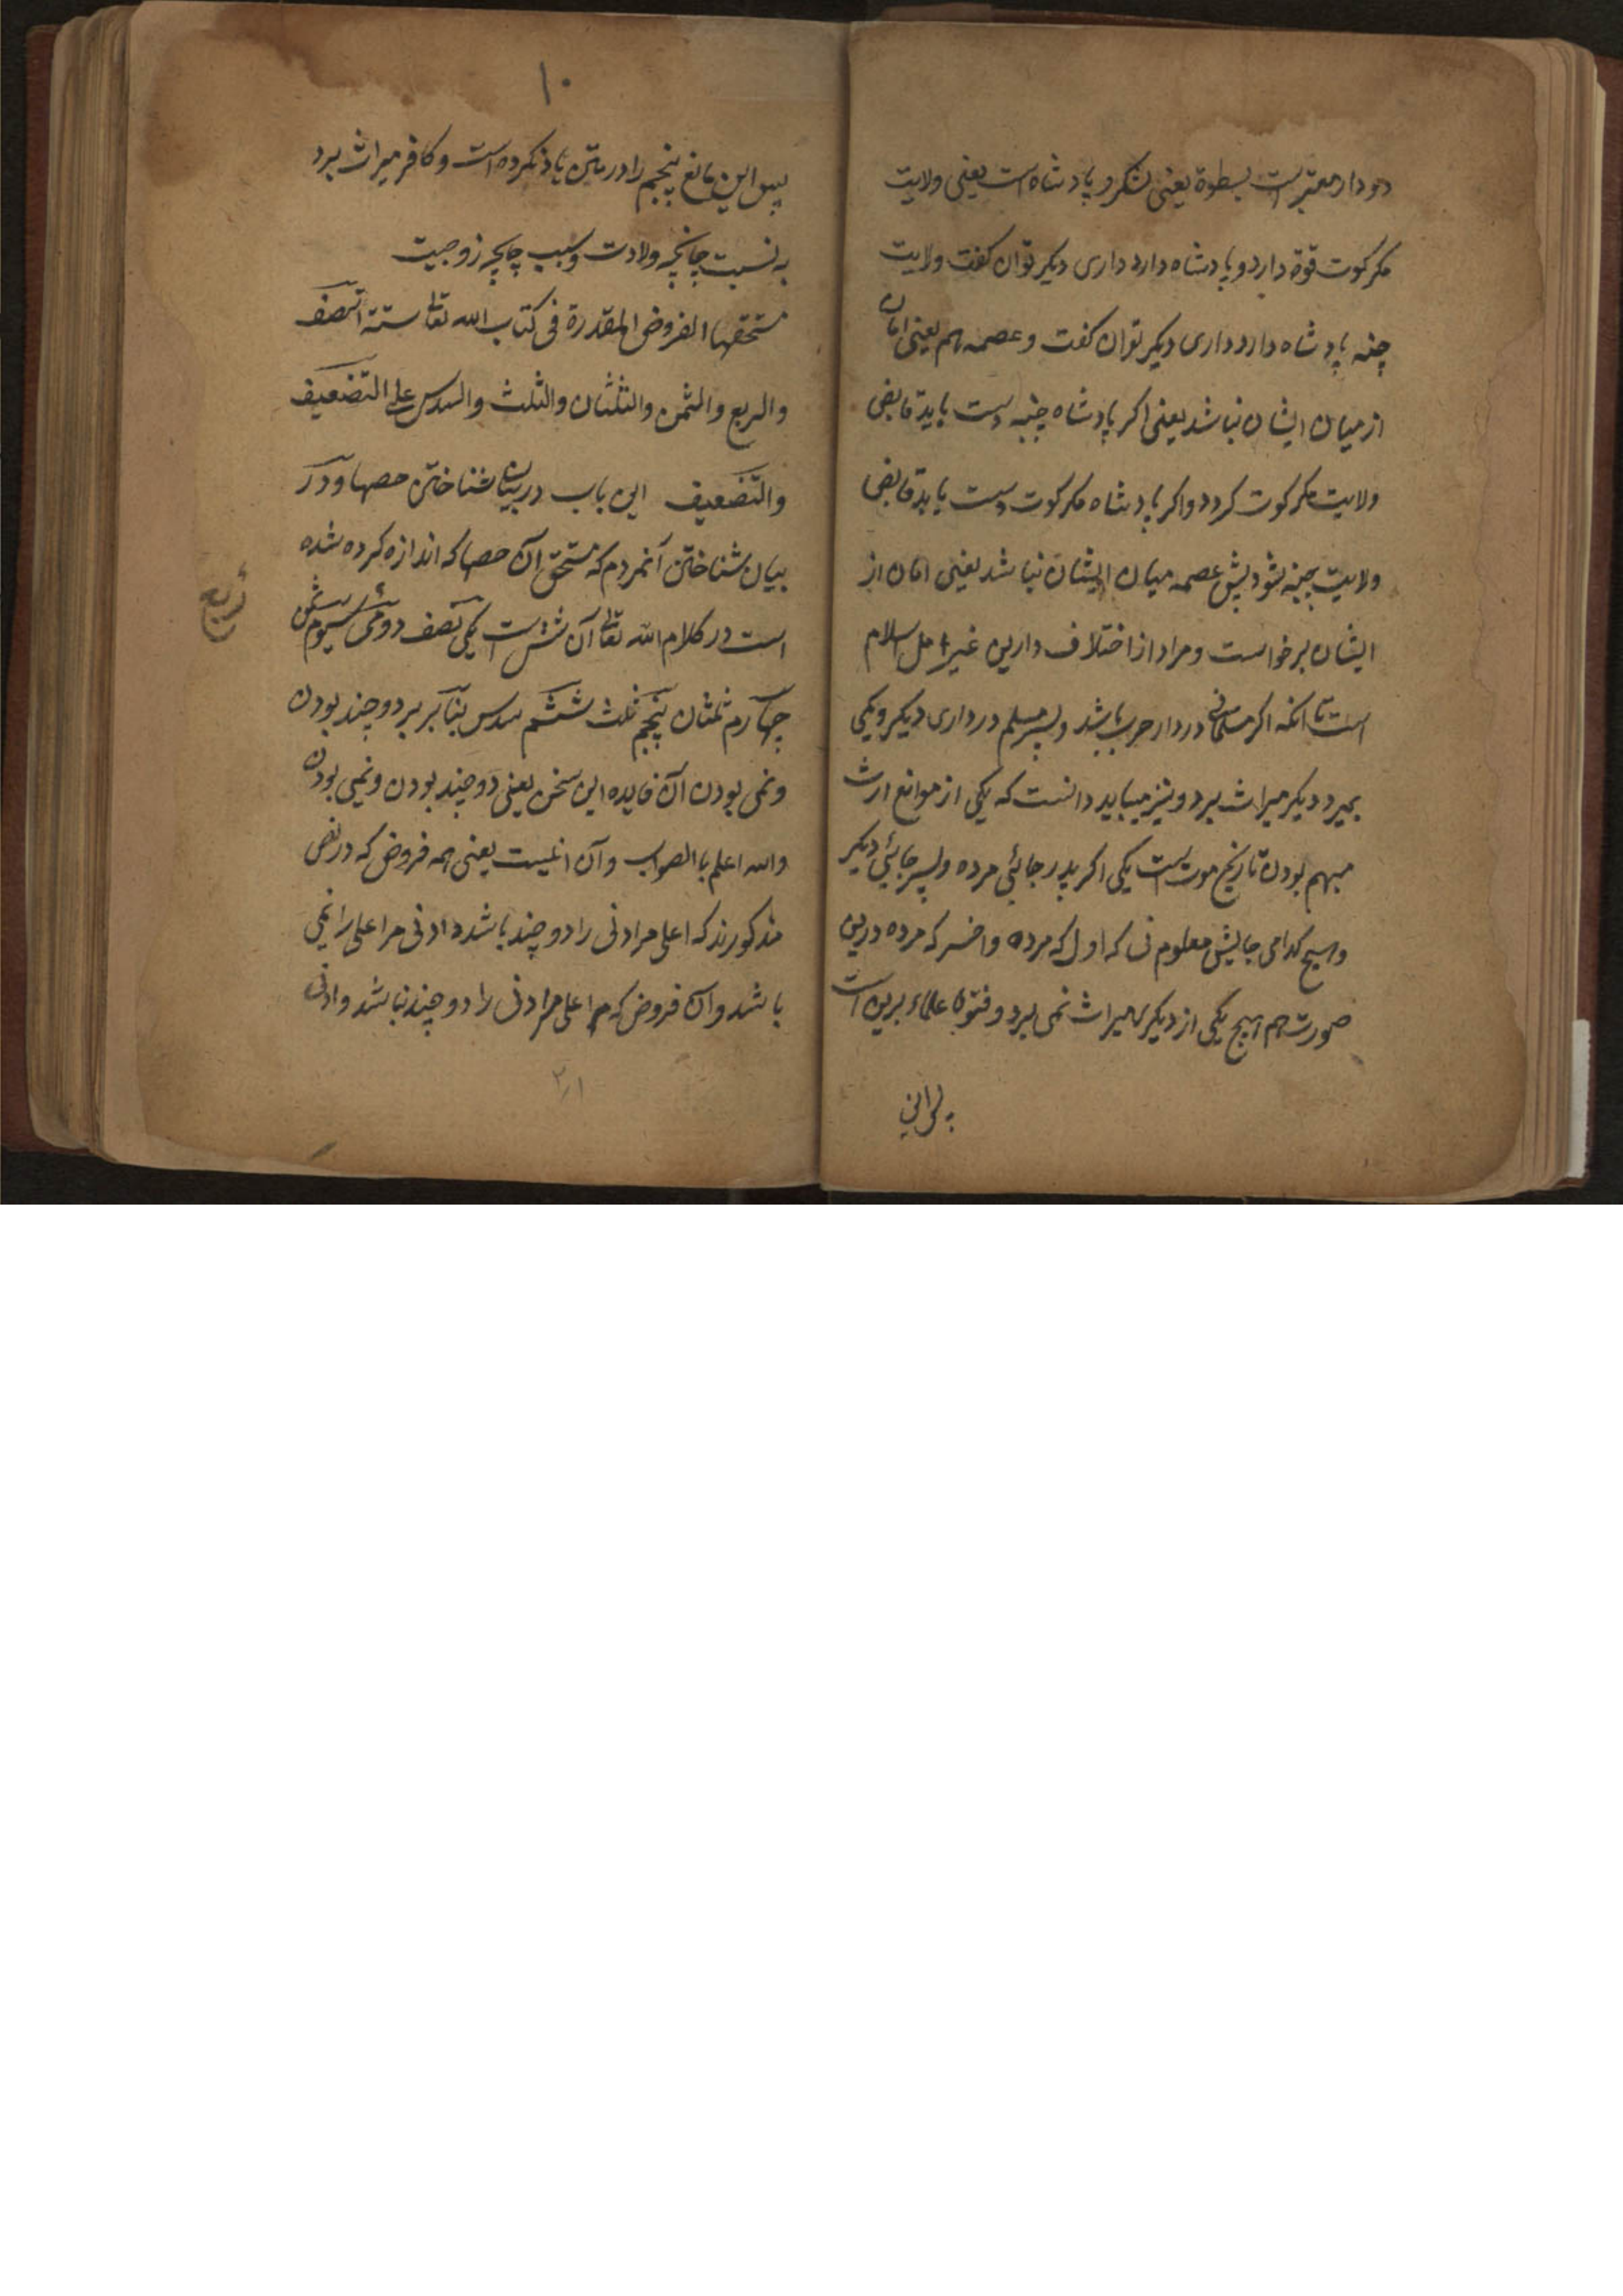 دو دار معتبر است بسطوة یعنی لشکر و پادشاه است یعنی ولایت
مکر کوت قوة دارد و پادشاه دارد داری دیکر توان کفت ولایت
چنبه پادشاه دارد داری دیکر توان کفت و عصمه هم یعنی امان
از میان ایشان نباشد یعنی اکر پادشاه چنبه دست یابد قابض
ولایت مکر کوت کردد و اکر پادشاه مکر کوت دست یابد قابض
ولایت چنبه شود پیش عصمه میان ایشان نباشد یعنی امان از
ایشان برخواست و مراد از اختلاف دارین غیر اهل اسلام
است تا انکه اکر مسلمانی در دار حرب باشد و پسر مسلم در داری دیکر و یکی
بمیرد دیکر میراث برد و نیز میباید دانست که یکی از موانع ارث
مبهم بودن تاریخ موت است یکی اکر پدر جائی مرده و پسر جائی دیکر
و هیچ کدامی جایش معلوم نی که اول که مرده و اخر که مرده درین
صورت هم هیچ یکی از دیکری میراث نمی برد و فتوی علماء برین است
۱۰
پس این مانع پنجم را در متن یاد نکرده است و کافر میراث برد
به نسبت چنانچه ولادت و سبب چنانچه زوجیت
مستحقها الفروض المقدرة فی کتاب الله تعالی ستة النصف
والربع والثمن والثلثان والثلث والسدس علی التضعیف
والتضعیف این باب در بیان شناختن حصها و در
بیان شناختن آنمردم که مستحق آن حصها که اندازه کرده شده
است در کلام الله تعالی آن شش است یکی نصف دومی سیوم ثمن
ربع
چهارم ثلثان پنجم ثلث ششم سدس بنابر بر دو چند بودن
و نمی بودن آن فایده این سخن یعنی دو چند بودن و نیمی بودن
والله اعلم با الصواب و آن انیست یعنی همه فروض که در نص
مذکورند که اعلی مر ادنی را دو چند باشد و ادنی مر اعلی را نیمی
باشد و آن فروض که مر اعلی مر ادنی را دو چند نباشد و ادنی